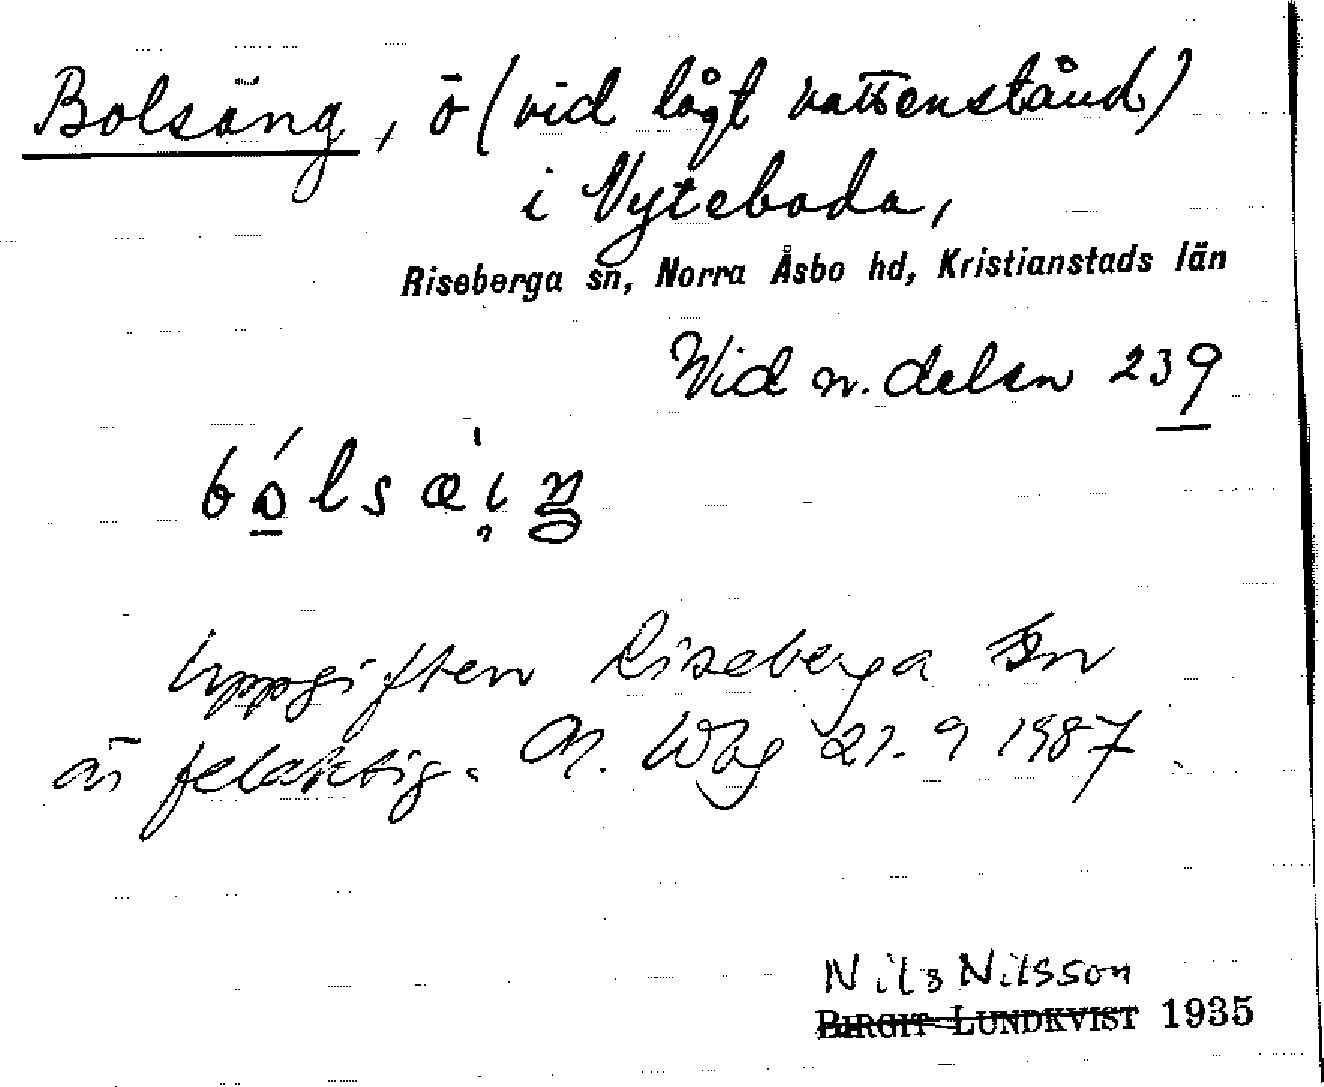 Bolsäng, ö (vid lågt vattenstånd)
i Vyteboda,
Riseberga sn, Norra Åsbo hd, Kristianstads län
Vid n. delen 239
Uppgiften Riseberga sn
är felaktig. 21.9 1987.
Nils Nilsson
BIRGIT LUNDKVIST 1935